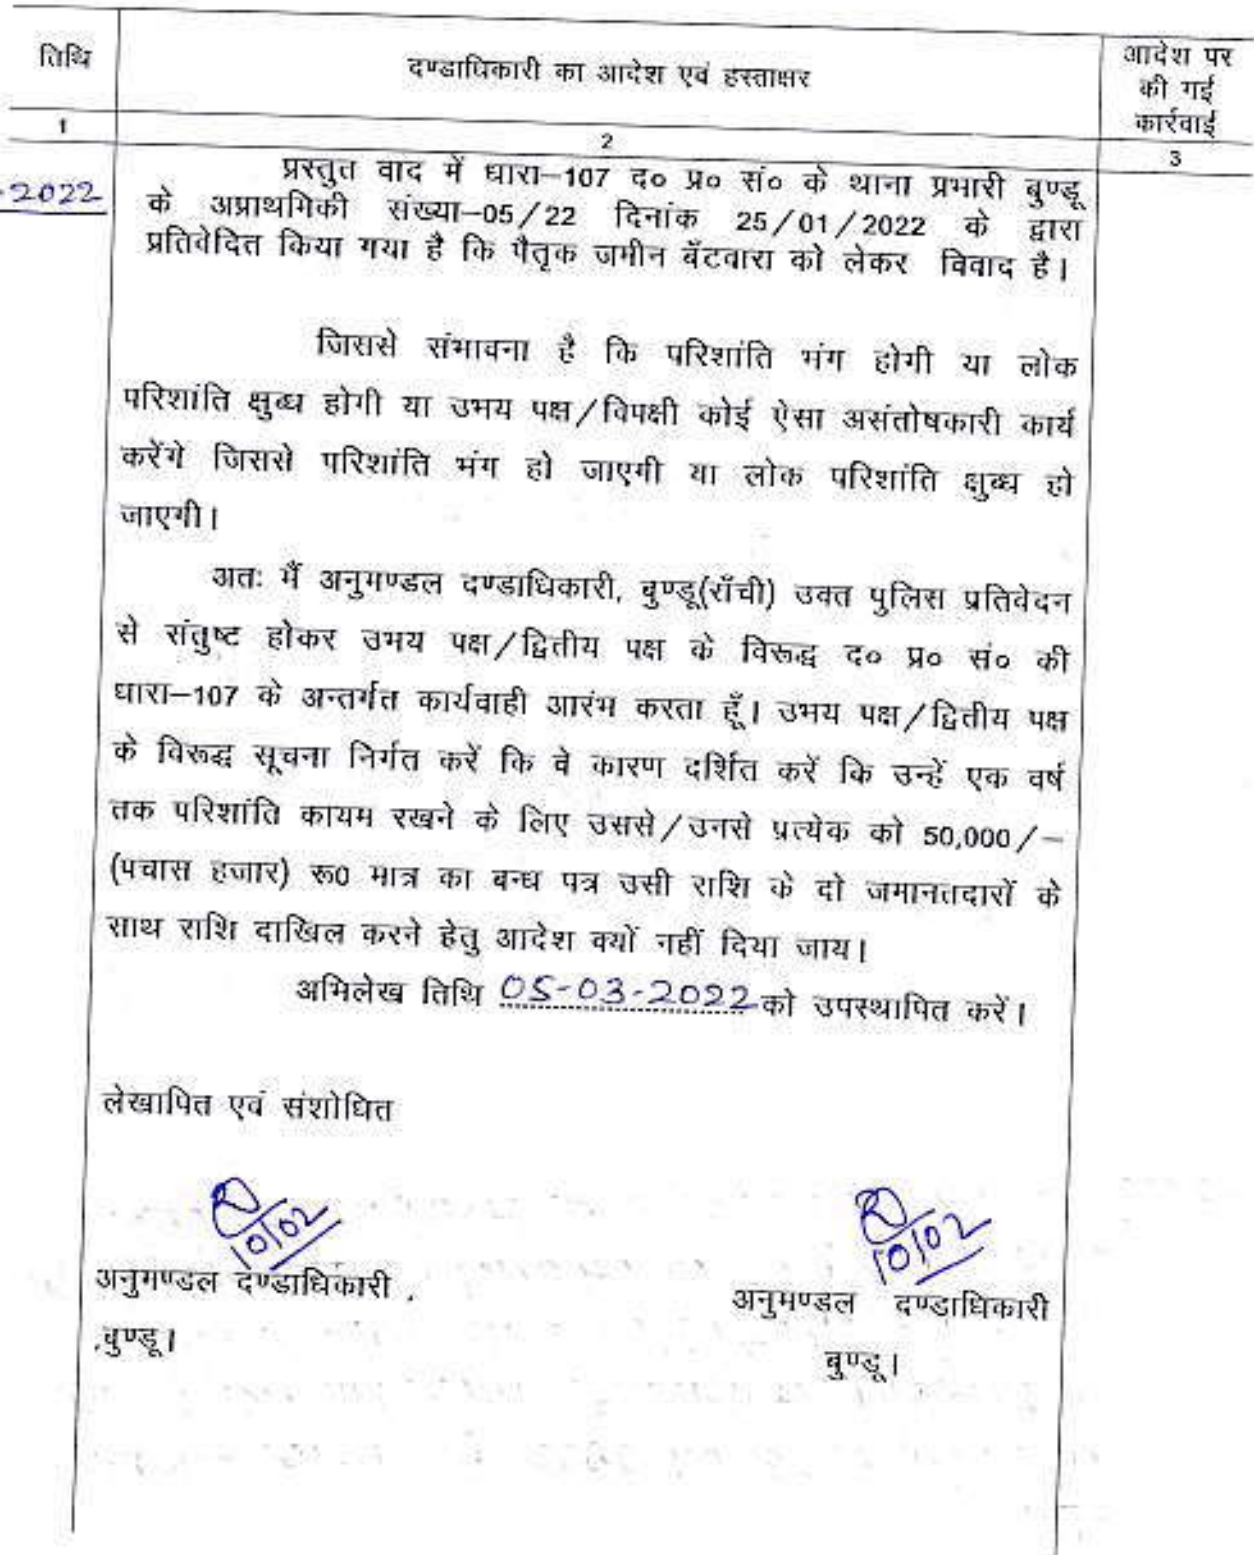 तिथि
दण्डाधिकारी का आदेश एवं हस्ताक्षर
आदेश पर
की गई
कार्रवाई
1
2
3
-2022
प्रस्तुत वाद में धारा–107 द० प्र० सं० के थाना प्रभारी बुण्डू
के अप्राथमिकी संख्या–05/22 दिनांक 25/01/2022 के द्वारा
प्रतिवेदित किया गया है कि पैतृक जमीन बँटवारा को लेकर विवाद है।
जिससे संभावना है कि परिशांति भंग होगी या लोक
परिशांति क्षुब्ध होगी या उभय पक्ष/विपक्षी कोई ऐसा असंतोषकारी कार्य
करेंगे जिससे परिशांति भंग हो जाएगी या लोक परिशांति क्षुब्ध हो
जाएगी।
अतः मैं अनुमण्डल दण्डाधिकारी, बुण्डू(राँची) उक्त पुलिस प्रतिवेदन
से संतुष्ट होकर उभय पक्ष/द्वितीय पक्ष के विरूद्ध द० प्र० सं० की
धारा–107 के अन्तर्गत कार्यवाही आरंभ करता हूँ। उभय पक्ष/द्वितीय पक्ष
के विरूद्ध सूचना निर्गत करें कि वे कारण दर्शित करें कि उन्हें एक वर्ष
तक परिशांति कायम रखने के लिए उससे/उनसे प्रत्येक को 50,000/–
(पचास हजार) रू0 मात्र का बन्ध पत्र उसी राशि के दो जमानतदारों के
साथ राशि दाखिल करने हेतु आदेश क्यों नहीं दिया जाय।
अभिलेख तिथि 05-03-2022 को उपस्थापित करें।
लेखापित एवं संशोधित
10/02
10/02
अनुमण्डल दण्डाधिकारी ,
,बुण्डू।
अनुमण्डल दण्डाधिकारी
बुण्डू।